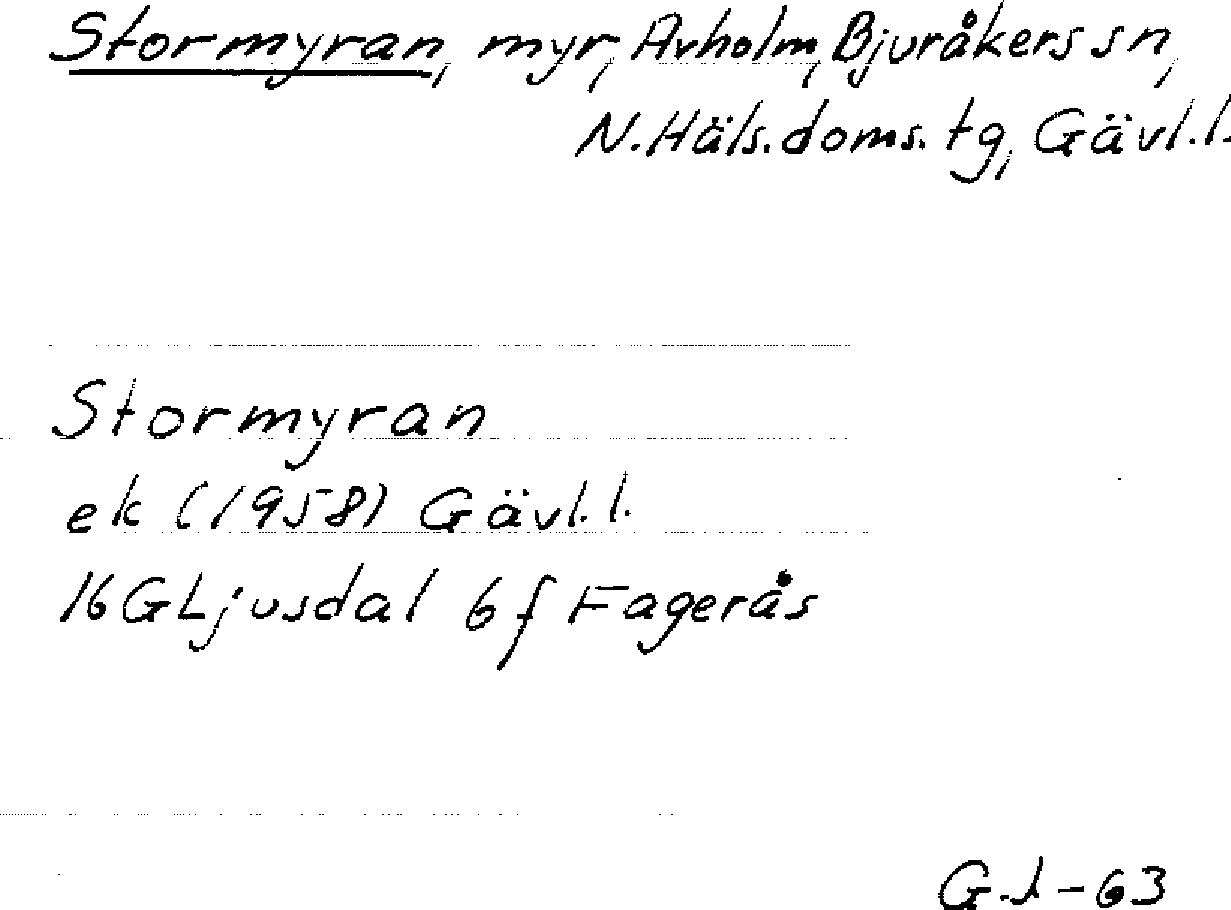 Stormyran, myr, Avholm, Bjuråkers sn,
N. Häls. doms. tg, Gävl. l.
Stormyran
ek (1958) Gävl. l.
16G Ljusdal 6 f Fagerås
-63